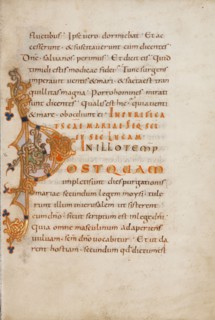 fluctibus. Ipse vero dormiebat. Et ac
cesserunt. & suscitaverunt eum dicentes
Dne. salva nos perimus. Et dicit eis. Quid
timidi estis modicae fidei. Tunc surgens
imperavit ventis & mari. & facta est tran
quillitas magna. Porro homines mirati
sunt dicentes. Qualis est hic. quia venti
& mare. oboediunt ei.
IN ILLO TEMP
POSTQUAM
impleti sunt dies purgationis
mariae secundum legem moysi. tule
runt illum in hierusalem ut sisterent
eum dno. sicut scriptum est in lege dni.
Quia omne masculinum adaperiens
vulvam. scm dno vocabitur. Et ut da
rent hostiam. secundum qd dictum est